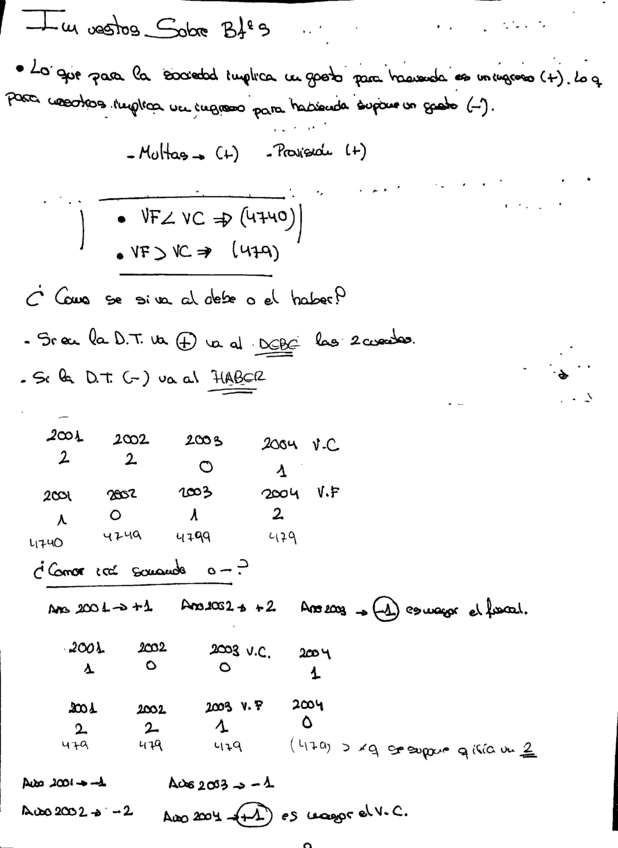 Impuestos Sobre Bfºs
• Lo que para la sociedad implica un gasto para hacienda es un ingreso (+). Lo q
para nosotros implica un ingreso para hacienda supone un gasto (-).
- Multas → (+) - Provisión (+)
• VF < VC ⇒ (4740)
• VF > VC ⇒ (479)
¿ Como se si va al debe o el haber?
- Si en la D.T. va (+) va al DEBE las 2 cuentas.
- Si la D.T. (-) va al HABER
2001 2002 2003 2004 V.C
2 2 0 1
2001 2002 2003 2004 V.F
1 0 1 2
4740 4740 4799 479
¿Como irá sumando o -?
Ano 2001 → +1 Ano 2002 → +2 Ano 2003 → (-1) es mayor el fiscal.
2001 2002 2003 V.C. 2004
1 0 0 1
2001 2002 2003 V.F 2004
2 2 1 0
479 479 479 (479) > xq se supone q iría un 2
Año 2001 → -1 Año 2003 → -1
Año 2002 → -2 Año 2004 → (+1) es mayor el V.C.